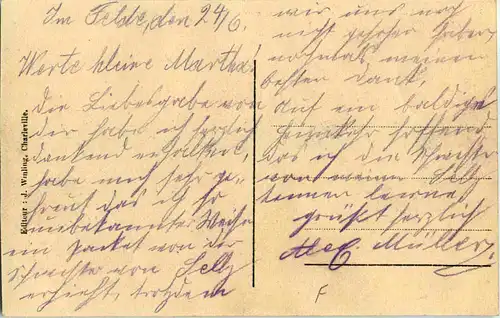 Im Felde, den 24/6.
Werte kleine Martha!
Die Liebesgabe von
dir habe ich herzlich
dankend erhalten,
habe mich sehr ge-
freut das ich so
unbekannter Weise
ein Packet von der
Schwester von Selz
erhielt, trotzdem
wir uns noch
nicht gesehen haben,
nochmals meinen
besten Dank,
Auf ein baldiges
hoffend
das ich die Schwester
von meinem
kennen lerne,
grüßt herzlich
Alex Müller.
F
Editeur : J. Winling, Charleville.